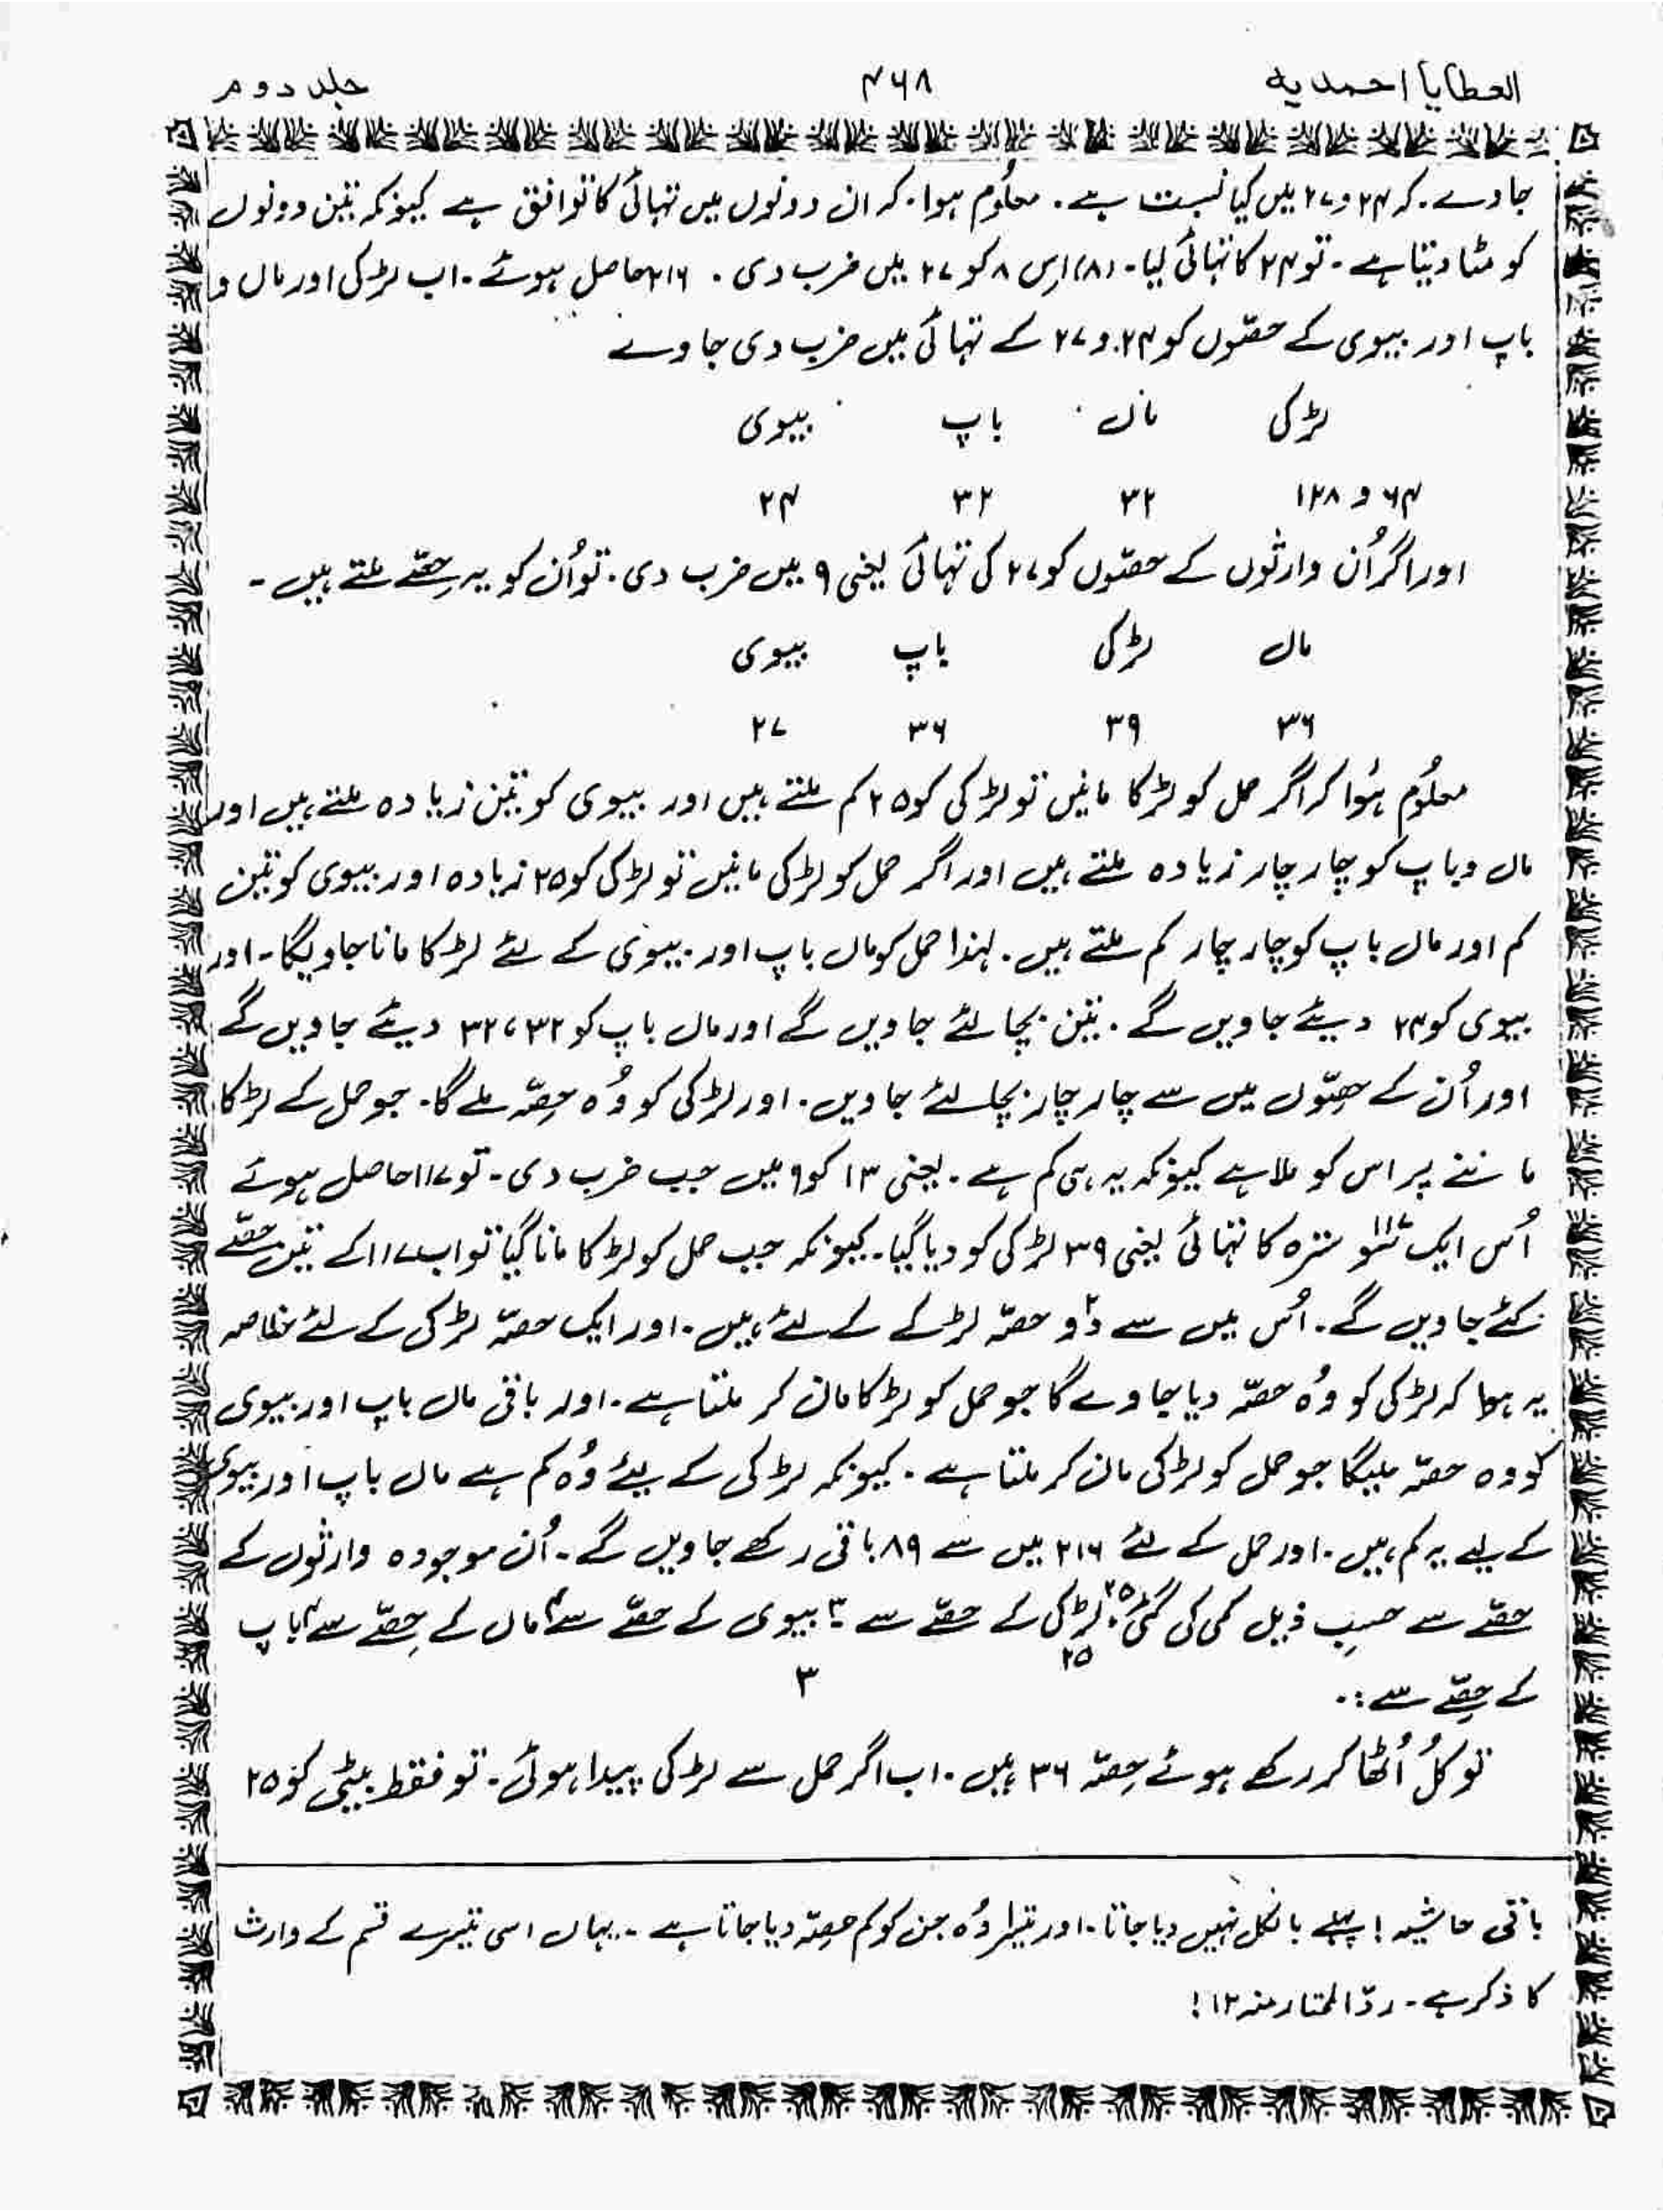 العطایا احمدیہ ۴۶۸ جلد دوم
جاوے۔ کہ ۲۴ و ۲۷ میں کیا نسبت ہے۔ معلُوم ہوا۔ کہ ان دونوں میں تہائی کا توافق ہے کیونکہ تین دونوں
کو مٹا دیتا ہے۔ تو ۲۴ کا تہائی لیا۔ (۸) اِس ۸ کو ۲۷ میں ضرب دی۔ ۲۱۶ حاصل ہوئے۔ اب لڑکی اور ماں و
باپ اور بیوی کے حصّوں کو ۲۴ و ۲۷ کے تہائی میں ضرب دی جاوے
لڑکی ماں باپ بیوی
۶۴ و ۱۲۸ ۳۲ ۳۲ ۲۴
اور اگر اُن وارثوں کے حصّوں کو ۲۷ کی تہائی یعنی ۹ میں ضرب دی۔ تو اُن کو یہ حِصّے ملتے ہیں۔
ماں لڑکی باپ بیوی
۳۶ ۳۹ ۳۶ ۲۷
معلُوم ہُوا کہ اگر حمل کو لڑکا مانیں تو لڑکی کو ۲۵ کم ملتے ہیں اور بیوی کو تین زیادہ ملتے ہیں اور
ماں و باپ کو چار چار زیادہ ملتے ہیں اور اگر حمل کو لڑکی مانیں تو لڑکی کو ۲۵ زیادہ اور بیوی کو تین
کم اور ماں باپ کو چار چار کم ملتے ہیں۔ لہٰذا حمل کو ماں باپ اور بیوی کے لئے لڑکا مانا جاویگا۔ اور
بیوی کو ۲۴ دیئے جاویں گے۔ تین بچا لئے جاویں گے اور ماں باپ کو ۳۲، ۳۲ دیئے جاویں گے
اور اُن کے حِصّوں میں سے چار چار بچا لئے جاویں۔ اور لڑکی کو وُہ حِصّہ ملے گا۔ جو حمل کے لڑکا
ماننے پر اس کو ملا ہے کیونکہ یہ ہی کم ہے۔ یعنی ۱۳ کو ۹ میں جب ضرب دی۔ تو ۱۱۷ حاصل ہوئے
اُس ایک سَو سترہ ۱۱۷ کا تہائی یعنی ۳۹ لڑکی کو دیا گیا۔ کیونکہ جب حمل کو لڑکا مانا گیا تو اب ۱۱۷ کے تین حصّے
کئے جاویں گے۔ اُس میں سے دٗو ۲ حصّہ لڑکے کے لئے ہیں۔ اور ایک حصّہ لڑکی کے لئے خلاصہ
یہ ہوا کہ لڑکی کو وُہ حصّہ دیا جاوے گا جو حمل کو لڑکا مان کر ملتا ہے۔ اور باقی ماں باپ اور بیوی
کو وہ حصّہ ملیگا جو حمل کو لڑکی مان کر ملتا ہے۔ کیونکہ لڑکی کے لیئے وُہ کم ہے ماں باپ اور بیوی
کے لیے یہ کم ہیں۔ اور حمل کے لئے ۲۱۶ میں سے ۸۹ باقی رکھے جاویں گے۔ اُن موجودہ وارثوں کے
حصّے سے حسبِ ذیل کمی کی گئی: ۲۵ لڑکی کے حصّے سے ۳ بیوی کے حصّے سے ۴ ماں کے حِصّے سے ۴ باپ
۲۵ ۳
کے حِصّے سے:۔
تو کُل اُٹھا کر رکھے ہوئے حِصّہ ۳۶ ہیں۔ اب اگر حمل سے لڑکی پیدا ہوئی۔ تو فقط بیٹی کو ۲۵
باقی حاشیہ! پہلے بالکل نہیں دیا جاتا۔ اور تیسرا وُہ جن کو کم حصّہ دیا جاتا ہے۔ یہاں اسی تیسرے قسم کے وارث
کا ذکر ہے۔ ردّ المحتار منہ ۱۲!